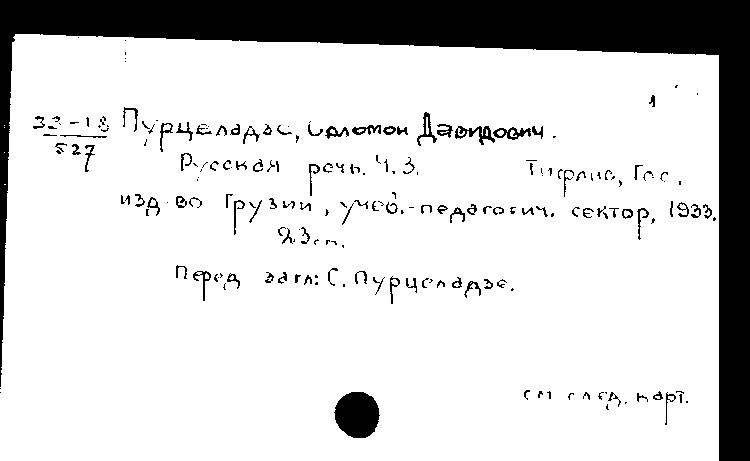 1
33-18 Пурцеладзе, Соломон Давидович.
527
Русская речь. Ч. 3. Тифлис, Гос.
изд-во Грузии, учеб.-педагогич. сектор, 1933.
23 см.
Перед загл: С. Пурцеладзе.
см след. карт.